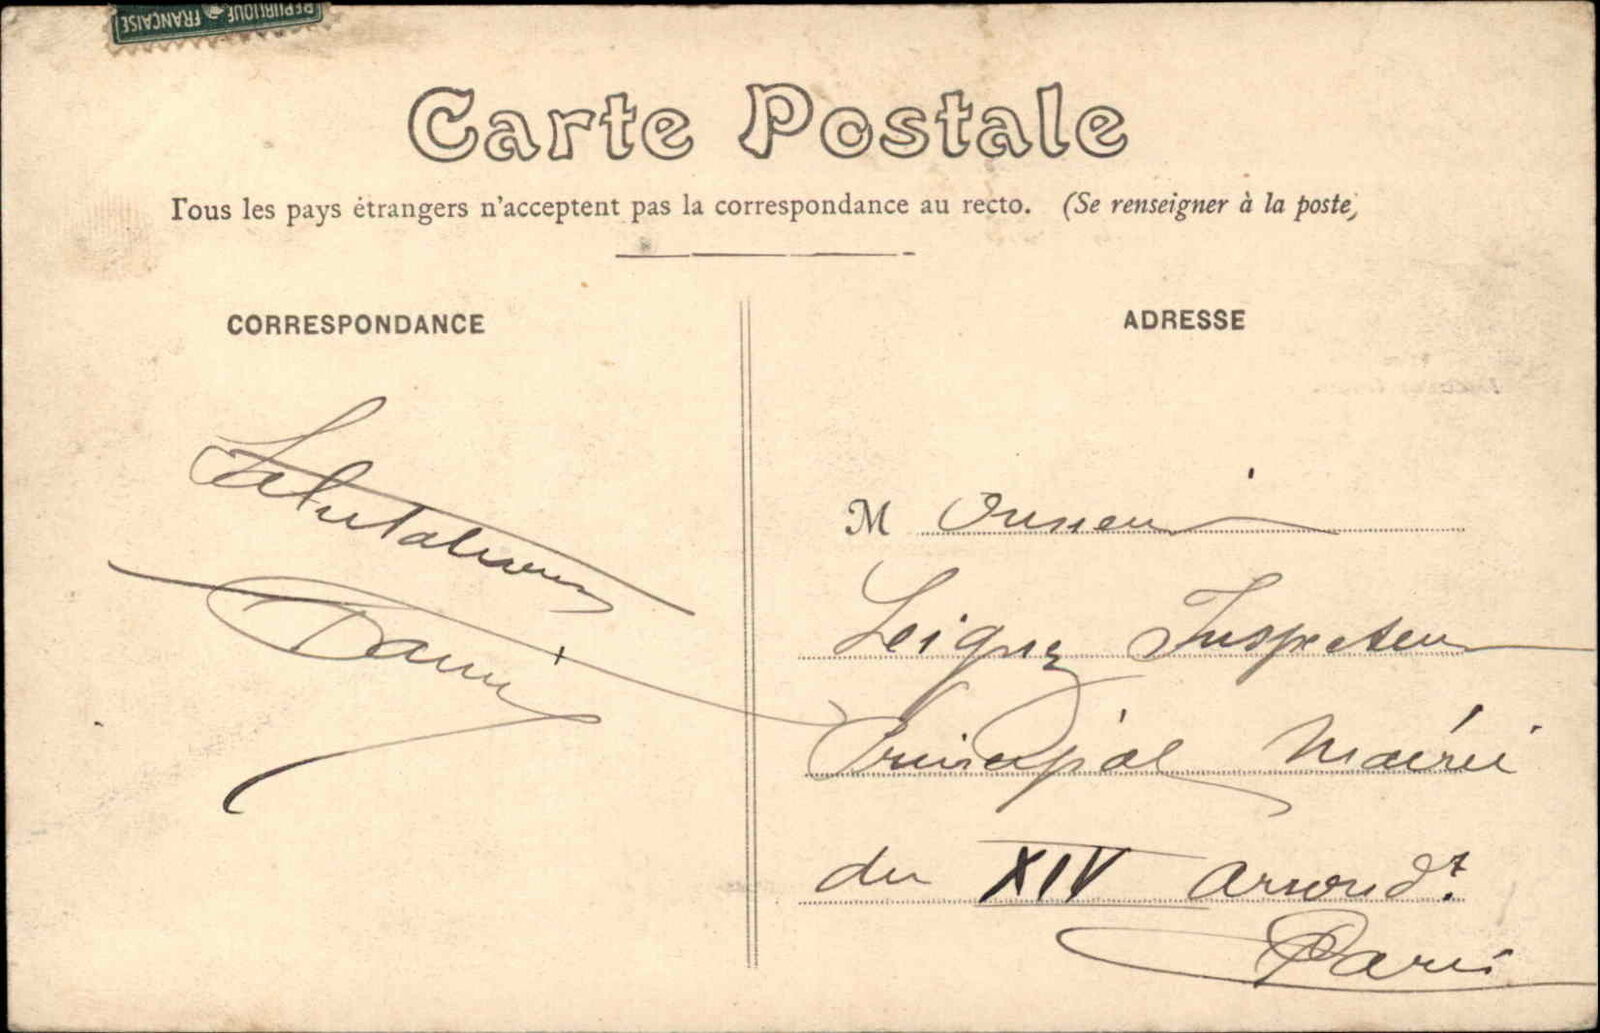 REPUBLIQUE FRANÇAISE
Carte Postale
Tous les pays étrangers n'acceptent pas la correspondance au recto. (Se renseigner à la poste)
CORRESPONDANCE
Salutations
ADRESSE
Monsieur
Leigny Inspecteur
Principal Mairie
du XIV Arrondt.
Paris